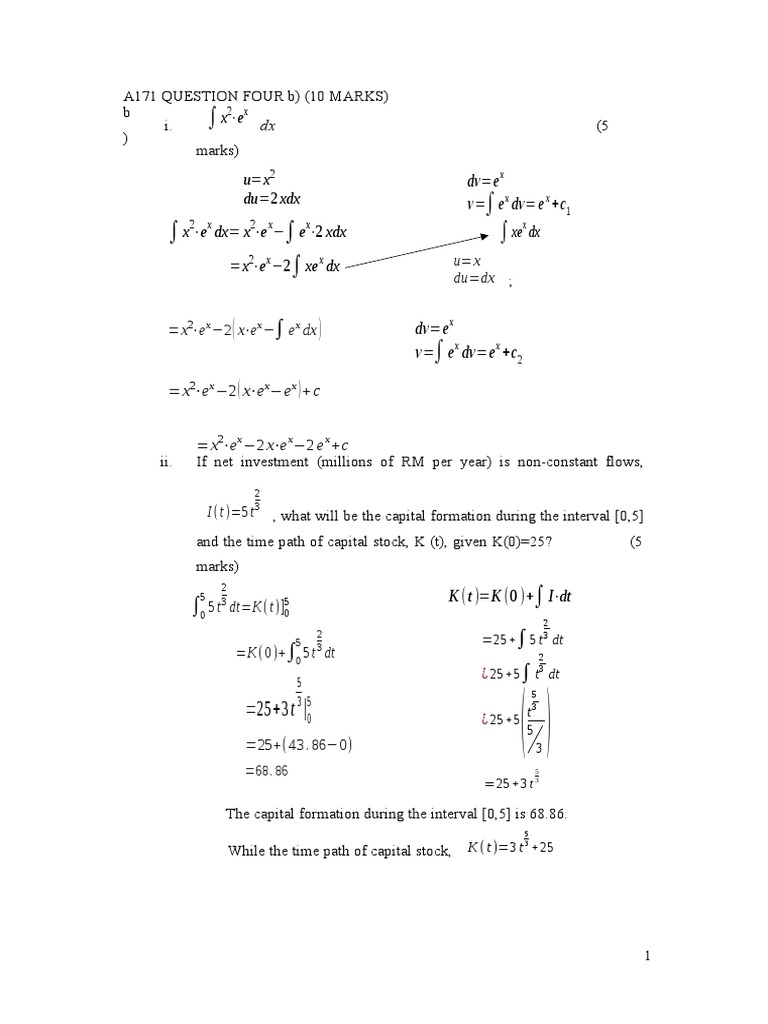 A171 QUESTION FOUR b) (10 MARKS)
b
)
i. ∫ x²·eˣ dx (5
marks)
u=x² dv=eˣ
du=2xdx v=∫ eˣ dv=eˣ+c₁
∫ x²·eˣ dx= x²·eˣ−∫ eˣ·2xdx ∫ xeˣ dx
=x²·eˣ−2∫ xeˣ dx u=x
du=dx ;
=x²·eˣ−2(x·eˣ−∫ eˣ dx) dv=eˣ
v=∫ eˣ dv=eˣ+c₂
=x²·eˣ−2(x·eˣ−eˣ)+c
=x²·eˣ−2x·eˣ−2eˣ+c
ii. If net investment (millions of RM per year) is non-constant flows,
I(t)=5t^(2/3) , what will be the capital formation during the interval [0,5]
and the time path of capital stock, K (t), given K(0)=25? (5
marks)
∫₀⁵ 5t^(2/3) dt=K(t)]₀⁵ K(t)=K(0)+∫ I·dt
=K(0)+∫₀⁵ 5t^(2/3) dt =25+∫ 5t^(2/3) dt
¿25+5∫ t^(2/3) dt
=25+3t^(5/3)|₀⁵ ¿25+5(t^(5/3)/(5/3))
=25+(43.86−0)
=68.86 =25+3t^(5/3)
The capital formation during the interval [0,5] is 68.86.
While the time path of capital stock, K(t)=3t^(5/3)+25
1